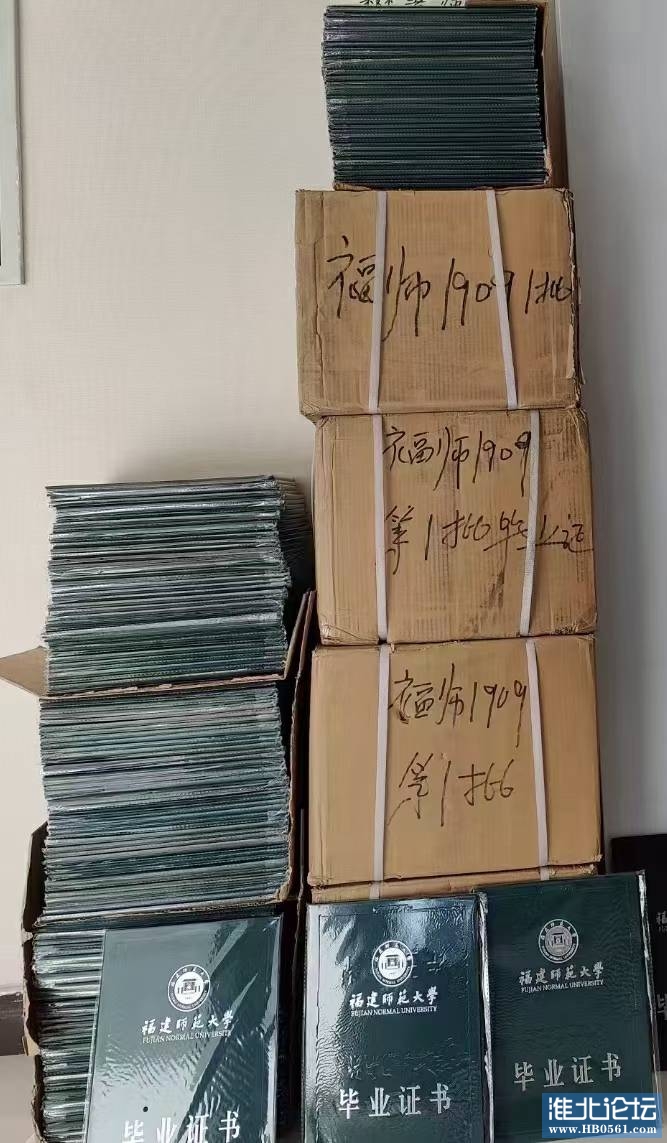 福师1909 1批
福师1909
第1批毕业证
福师1909
第1批
福建师范大学
FUJIAN NORMAL UNIVERSITY
毕业证书
福建师范大学
FUJIAN NORMAL UNIVERSITY
毕业证书
福建师范大学
FUJIAN NORMAL UNIVERSITY
毕业证书
淮北论坛
www.HB0561.com